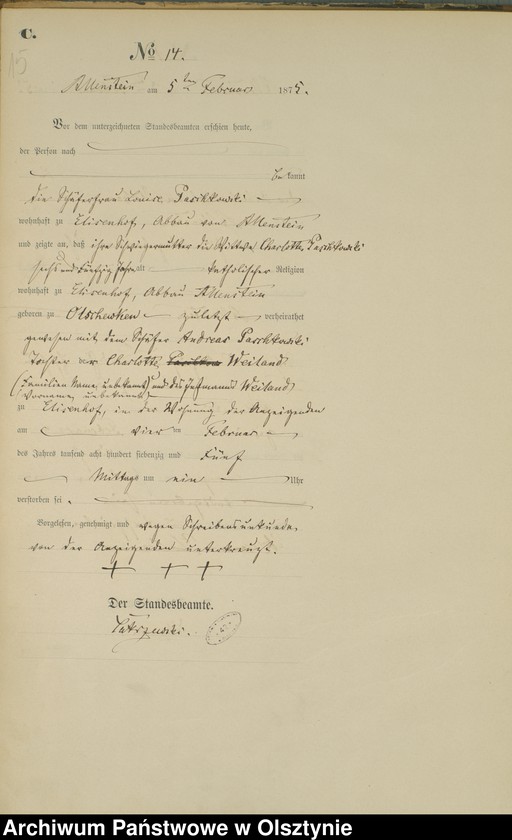 C.
15
No 14.
Allenstein am 5 ten Februar 1875.
Vor dem unterzeichneten Standesbeamten erschien heute,
der Person nach
be kannt
die Schäferfrau Louise Paschkowski
wohnhaft zu Elisenhof, Abbau von Allenstein
und zeigte an, daß ihre Schwiegermutter die Wittwe Charlotte Paschkowski
sechs und fünfzig Jahre alt katholischer Religion
wohnhaft zu Elisenhof, Abbau Allenstein
geboren zu Olschewken zuletzt verheirathet
gewesen mit dem Schäfer Andreas Paschkowski
Tochter der Charlotte Weiland
(Familien Name unbekannt) und des Weiland
(Vorname unbekannt)
zu Elisenhof, in der Wohnung der Anzeigenden
am vier ten Februar
des Jahres tausend acht hundert siebenzig und fünf
Mittags um ein Uhr
verstorben sei.
Vorgelesen, genehmigt und wegen Schreibensunkunde
von der Anzeigenden unterkreuzt.
+ + +
Der Standesbeamte.
Archiwum Państwowe w Olsztynie